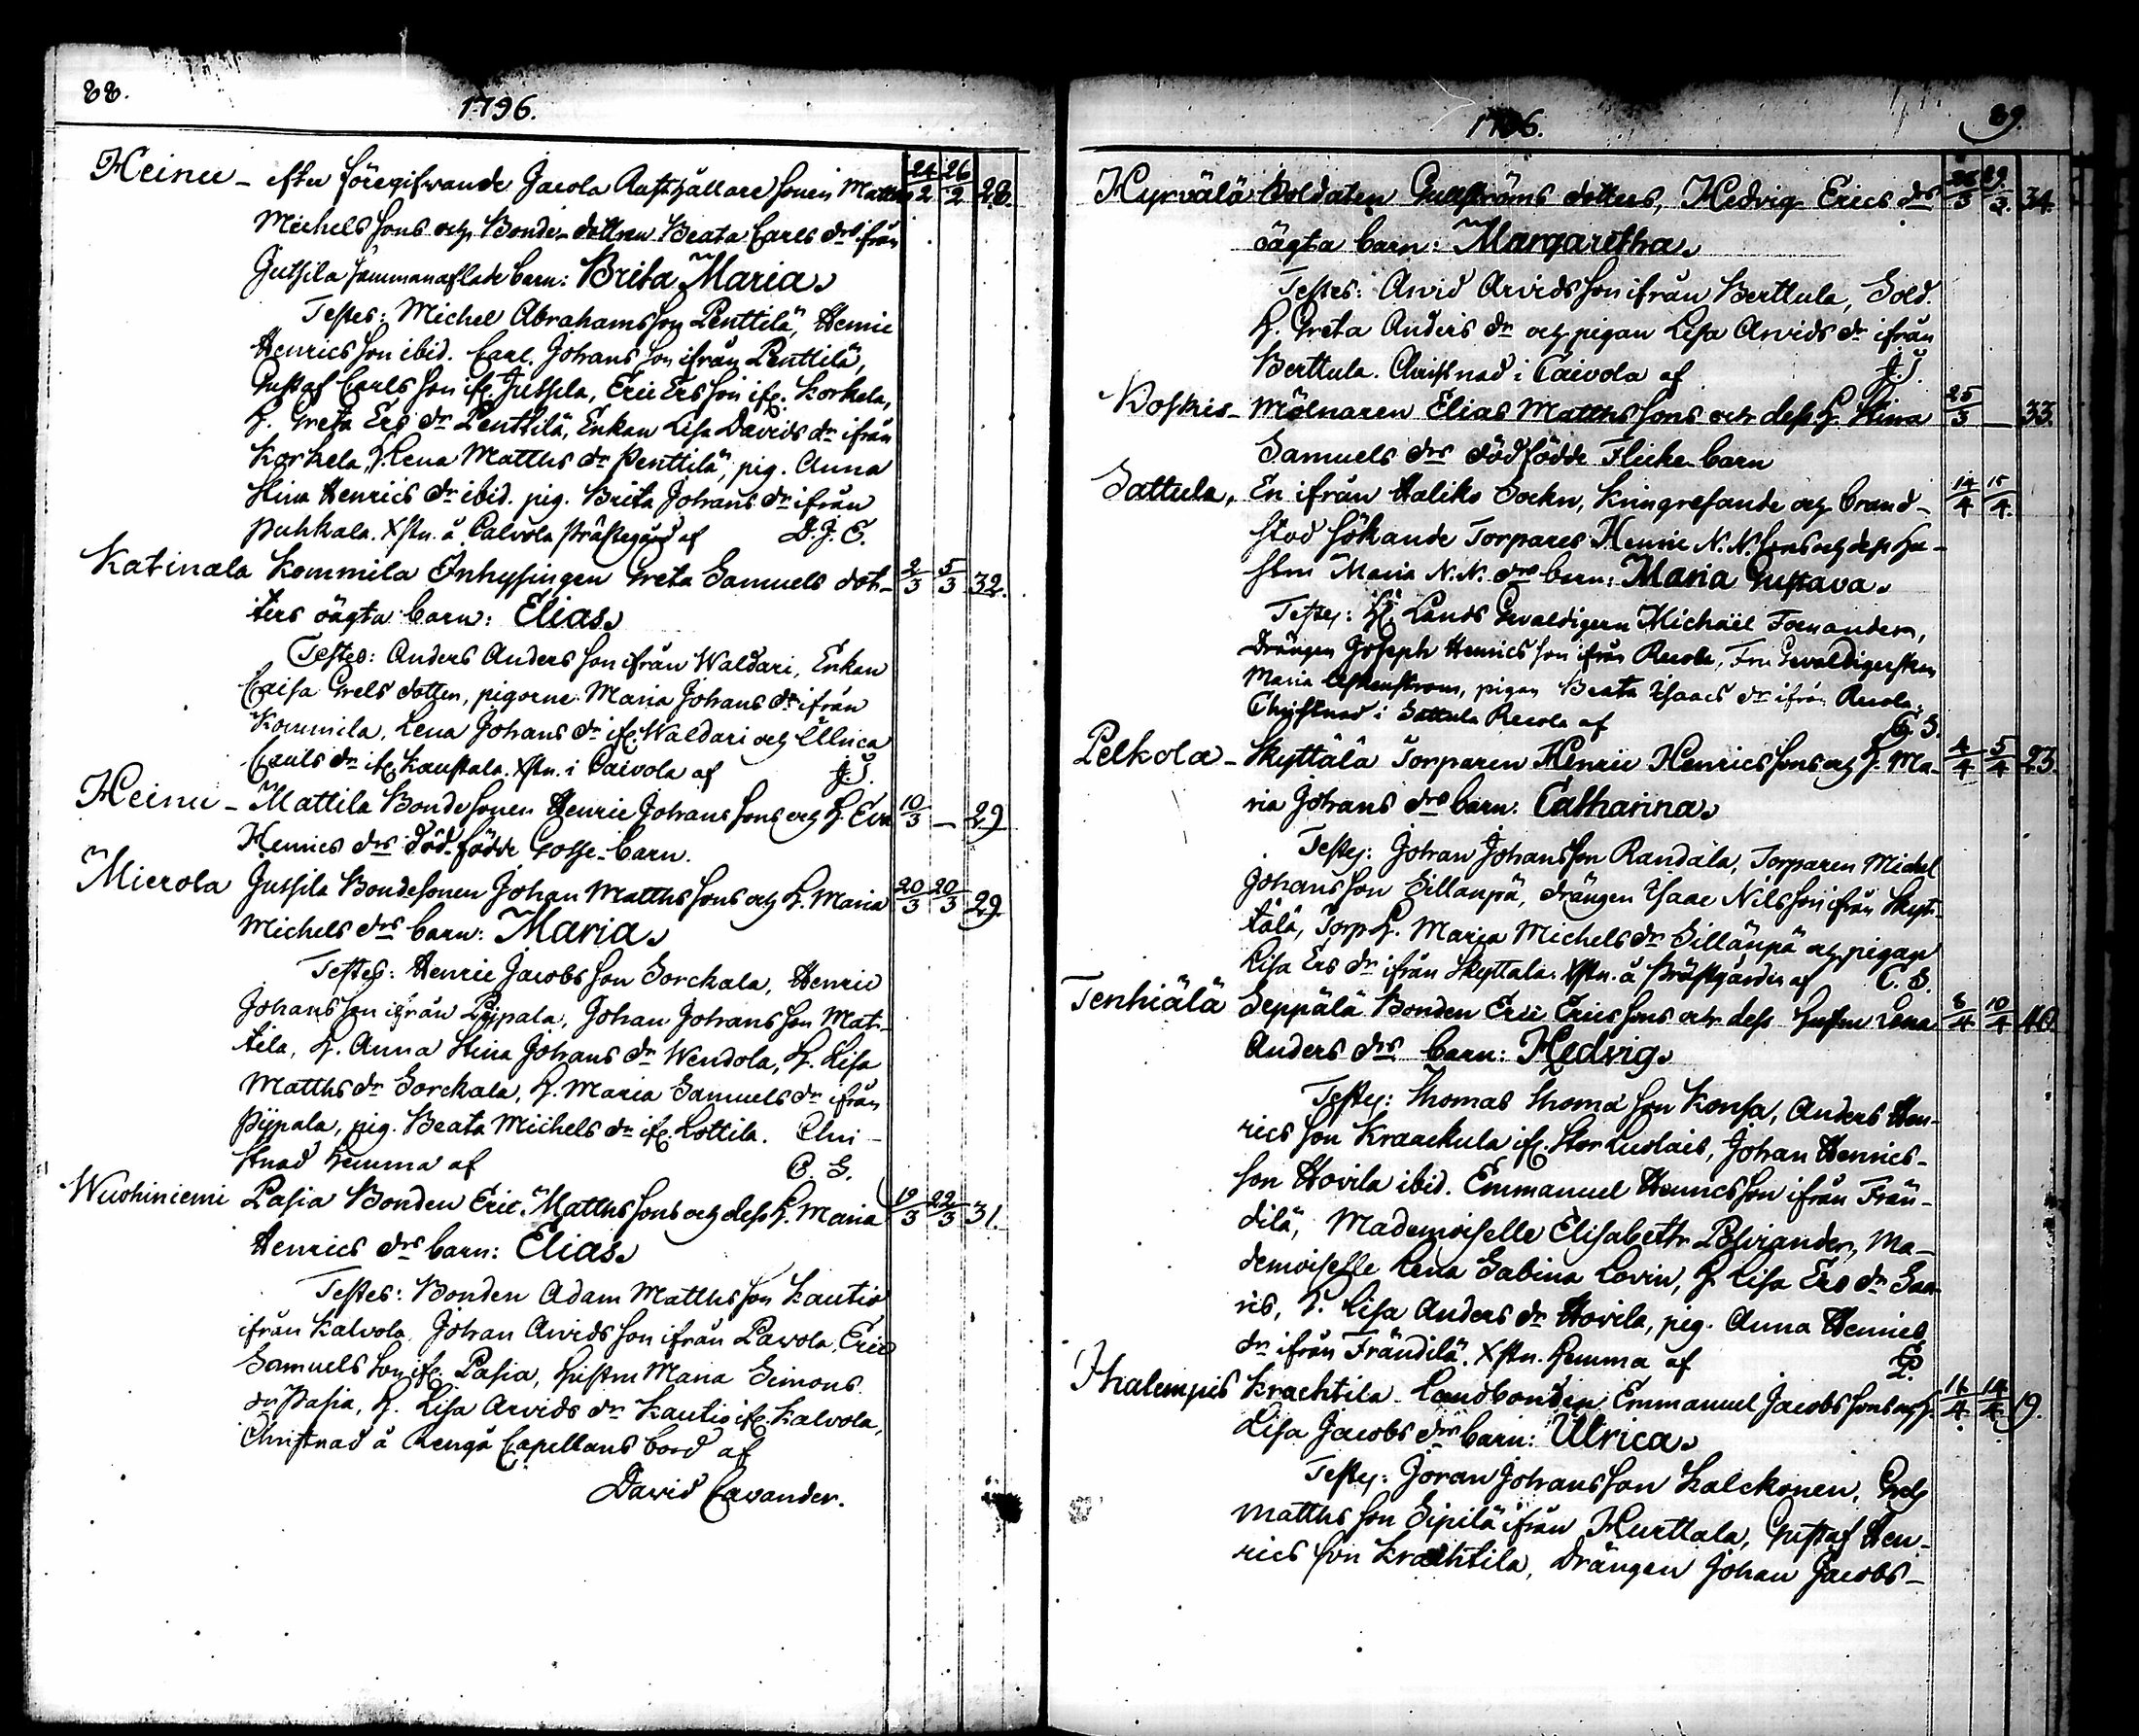 88.
1796.
Heinu - efter föregifwande Jacola Rusthållare sonen Matths 24/2 26/2 28.
Michels sons och Bonde-dottren Beata Carls drs ifrån
Jutsila sammanaflade barn: Brita Maria.
Testes: Michel Abrahamsson Penttilä, Henric
Henricsson ibid. Carl Johansson ifrån Penttilä,
Gustaf Carlsson ifr. Jutsila, Eric Ersson ifr. Korkela,
H. Greta Ers dr Penttilä, Enkan Lisa Davids dr ifrån
Korkela, H. Lena Matths dr Penttilä, pig. Anna
Stina Henrics dr ibid. pig. Brita Johans dr ifrån
Puhkala. Xstn. å Calvola Prästegård af D. J. C.
Katinala Kommila Inhysingen Greta Samuels dot- 2/3 5/3 32.
ters oägta barn: Elias.
Testes: Anders Andersson ifrån Waldari, Enkan
Caisa Grels dotter, pigorne Maria Johans dr ifrån
Kommila, Lena Johans dr ifr. Waldari och Ullrica
Carls dr ifr. Kaustala. Xstn. i Caivola af J. S.
Heinu - Mattila Bondesonen Henric Johanssons och H. Eva 10/3 — 29
Henrics drs död-födde Gosse-barn.
Mierola Jutsila Bondesonen Johan Matthssons och H. Maria 20/3 20/3 29.
Michels drs barn: Maria.
Testes: Henric Jacobsson Sorckala, Henric
Johansson ifrån Pijpala, Johan Johansson Mat-
tila, H. Anna Stina Johans dr Wendola, H. Lisa
Matths dr Sorckala, H. Maria Samuels dr ifrån
Pijpala, pig. Beata Michels dr ifr. Lottila. Chri-
stnad hemma af C. S.
Wuohiniemi Pasia Bonden Eric Matthssons och dess H. Maria 19/3 22/3 31.
Henrics drs barn: Elias.
Testes: Bonden Adam Matthsson Kautio
ifrån Kalvola, Johan Arvidsson ifrån Pawola, Eric
Samuelsson ifr. Pasia, hustru Maria Simons
dr Pasia, H. Lisa Arvids dr Kautio ifr. Kalvola,
Christnad å Rengå Capellans bord af
David Cavander.
1796.
89.
Hyrvälä Soldaten Gullströms dotters, Hedvig Erics drs 26/3 29/3. 34.
oägta barn: Margaretha.
Testes: Arvid Arvidsson ifrån Berttula, Sold.
H. Greta Anders dr och pigan Lisa Arvids dr ifrån
Berttula. Christnad i Caivola af J. S.
Koskis - Mölnaren Elias Matthssons och dess H. Stina 25/3 — 33.
Samuels drs dödfödde Flicke-barn
Sattula, En ifrån Haliko Sockn, Kringresande och brand- 14/4 15/4.
stod sökande Torpares Henric N. N. sons och dess hu-
stru Maria N. N. drs barn: Maria Gustava.
Testes: H. Lands Gevaldigern Michaël Fornander,
Drängen Joseph Henricsson ifrån Recola, Fru Gevaldigerskan
Maria pigan Beata Isaacs dr ifrån Recola.
Christnad i Sattula Recola af C. S.
Pelkola - Skyttälä Torparen Henric Henricssons och H. Ma- 4/4 5/4 23.
ria Johans drs barn: Catharina.
Testes: Johan Johansson Randala, Torparen Michel
Johansson Sillanpä, drängen Isaac Nilsson ifrån Skyt-
tälä, Torp. H. Maria Michels dr Sillänpä och pigan
Lisa Ers dr ifrån Skyttala. Xstn. å Prästgården af C. S.
Tenhiälä Seppälä Bonden Eric Ericssons och dess hustru Lena 8/4 10/4 40.
Anders drs barn: Hedvig.
Testes: Thomas Thomasson Konsa, Anders Hen-
ricsson Kraackula ifr. Stor Luolais, Johan Henrics-
son Hovila ibid. Emmanuel Henricsson ifrån Frän-
dilä, Mademoiselle Elisabeth Polviander, Ma-
demoiselle Lena Sabina Lovin, H. Lisa Ers dr Saa-
ris, H. Lisa Anders dr Hovila, pig. Anna Henrics
dr ifrån Frändilä. Xstn. hemma af P.
Ihalempis Krachtila Landbonden Emmanuel Jacobssons och H. 11/4 14/4 19.
Lisa Jacobs drs barn: Ulrica.
Testes: Joran Johansson Kalckonen, Grels
Matthsson Sipilä ifrån Hurttala, Gustaf Hen-
ricsson Krachtila, drängen Johan Jacobs-